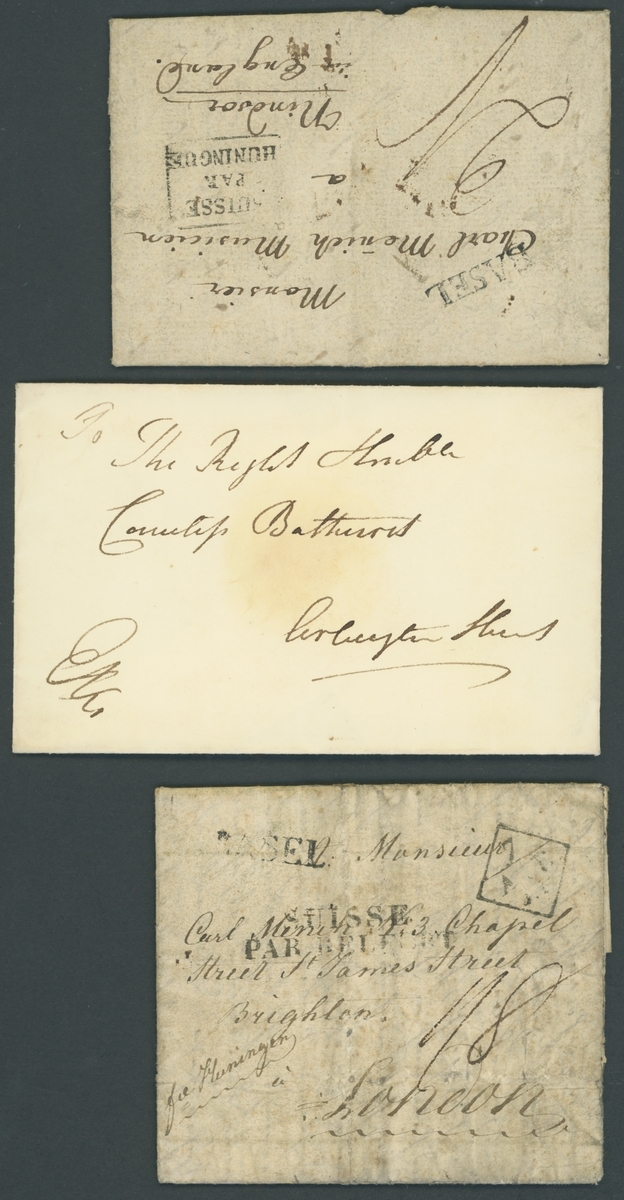 Monsier
Charl Menich Musicien
a
Windsor
in England.
BASEL
SUISSE
PAR
HUNINGUE
To
The Right Honble
Countess Bathurst
Arlington Street
BASEL
A Monsieur
SUISSE
PAR BELFORT
Carl Menich N. 3. Chapel
Street St James Street
Brighton.
118
à
London